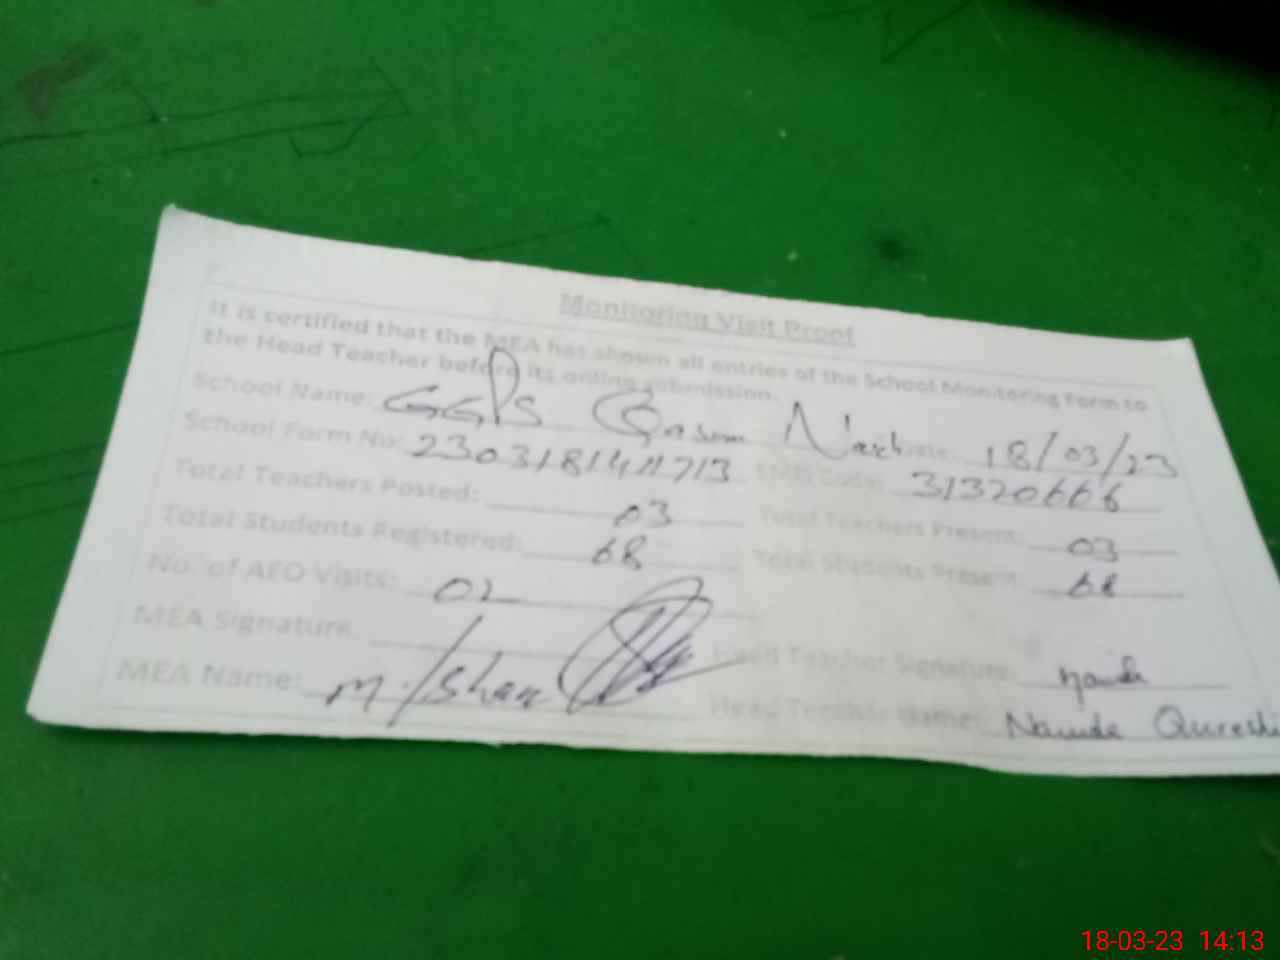 Monitoring Visit Proof
It is certified that the MEA has shown all entries of the School Monitoring Form to
the Head Teacher before its online submission.
School Name: GGPS Qasim Date: 18/03/23
School Form No: EMIS Code: 31320666
Total Teachers Posted: 03 Total Teachers Present: 03
Total Students Registered: 68 Total Students Present: 68
No. of AEO Visits: 02
MEA Signature Head Teacher Signature:
MEA Name: Head Teacher Name: Qureshi
18-03-23 14:13